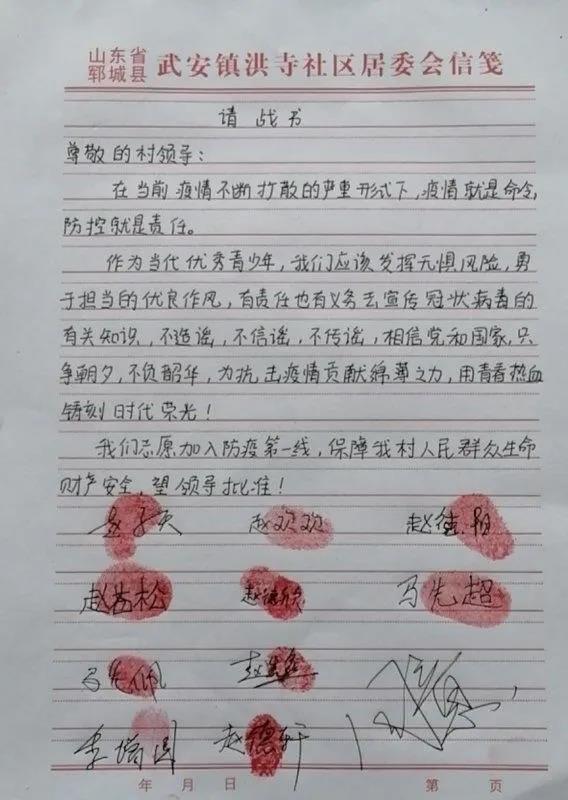 山东省
郓城县 武安镇洪寺社区居委会信笺
请战书
尊敬的村领导：
在当前疫情不断扩散的严重形式下，疫情就是命令，
防控就是责任。
作为当代优秀青少年，我们应该发挥无惧风险，勇
于担当的优良作风，有责任也有义务去宣传冠状病毒的
有关知识，不造谣，不信谣，不传谣，相信党和国家，只
争朝夕，不负韶华，为抗击疫情贡献绵薄之力，用青春热血
铸刻时代荣光！
我们志愿加入防疫第一线，保障我村人民群众生命
财产安全，望领导批准！
赵欢欢 赵德阳
赵茜松 赵德欣 马先超
马先佩
李培园 赵德轩
年 月 日 第 页